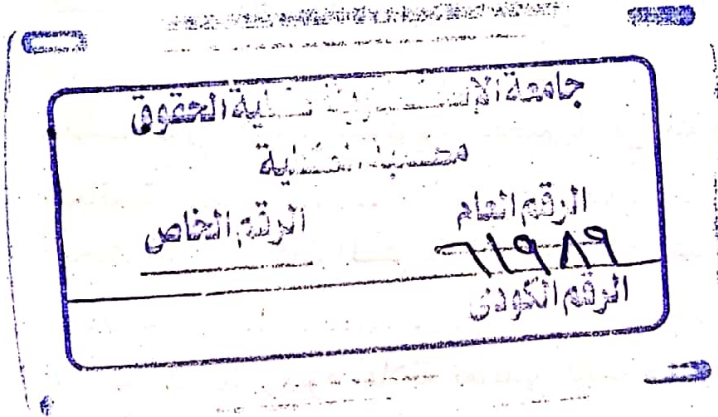 جامعة الإسكندرية كلية الحقوق
مكتبة الكلية
الرقم العام
الرقم الخاص
٦١٩٨٩
الرقم الكودى